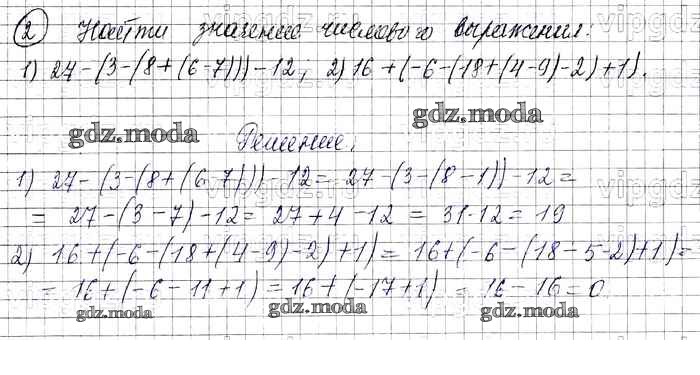 2 Найти значение числового выражения.
1) 27-(3-(8+(6-7)))-12; 2) 16+(-6-(18+(4-9)-2)+1).
gdz.moda
gdz.moda
Решение.
1) 27-(3-(8+(6-7)))-12= 27-(3-(8-1))-12=
= 27-(3-7)-12= 27+4-12 = 31-12=19
2) 16+(-6-(18+(4-9)-2)+1)= 16+(-6-(18-5-2)+1)=
= 16+(-6-11+1)=16+(-17+1) = 16-16=0
gdz.moda gdz.moda gdz.moda